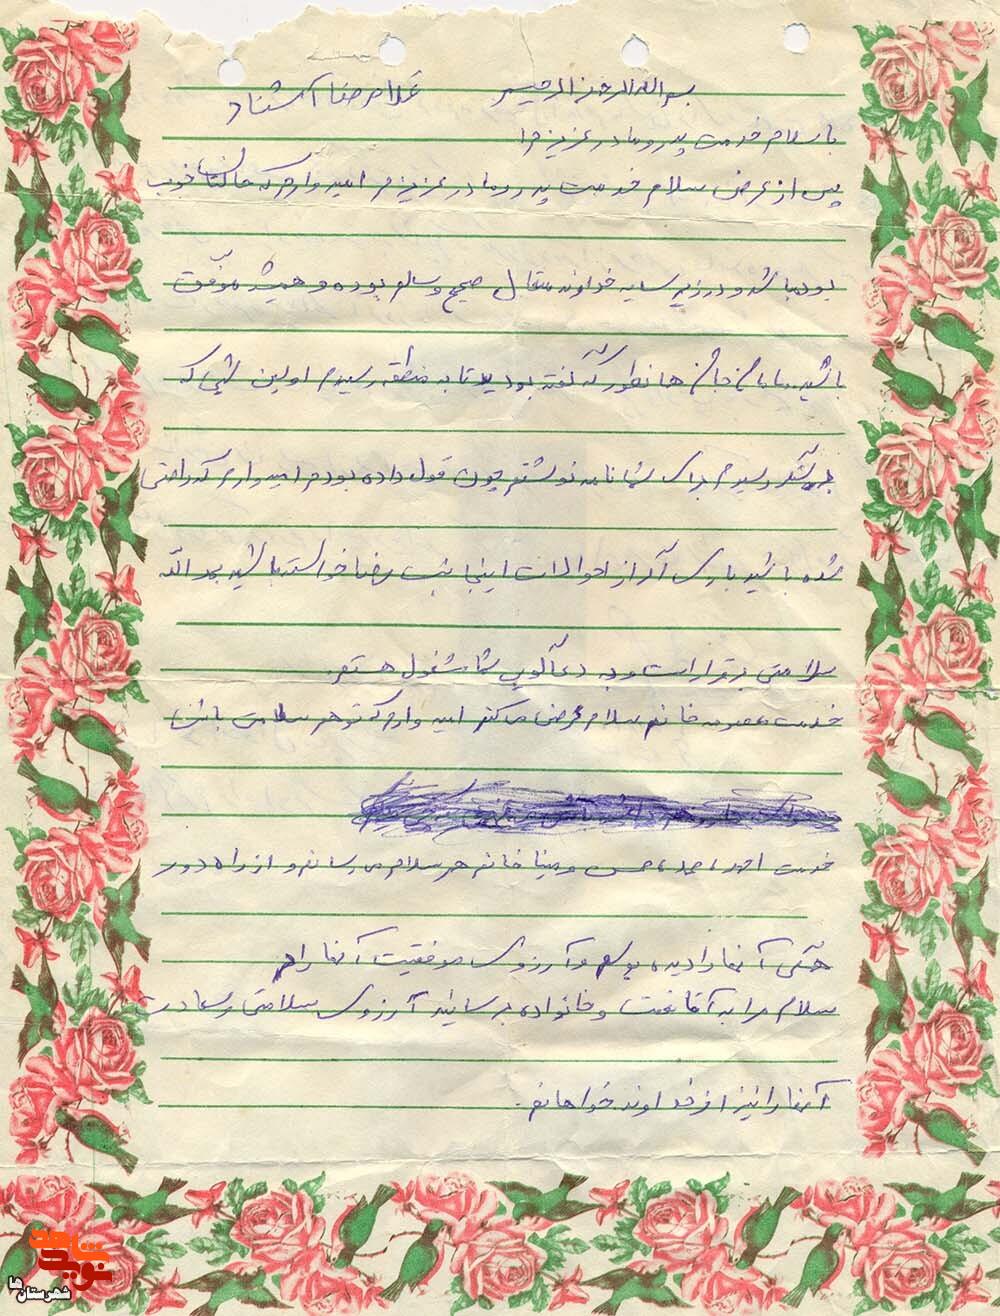 بسم الله الرحمن الرحیم غلامرضا
با سلام خدمت پدر و مادر عزیزم
پس از عرض سلام خدمت پدر و مادر عزیزم امیدوارم که حالتان خوب
بوده باشد و در زیر سایه خداوند متعال صحیح و سالم بوده و همیشه موفق
باشید مامان جان همانطور که گفته بودید تا به منطقه رسیدم اولین شبی که
رسیدم برای شما نامه نوشتم چون قول داده بودم امیدوارم که راضی
شده باشید باری اگر از احوالات اینجانب رضا خواسته باشید بحمدالله
سلامتی برقرار است و به دعاگویی شما مشغول هستم.
خدمت معصومه خانم سلام عرض میکنم امیدوارم که تو هم سلامت باشی
خدمت احمد، محمد، محسن و مینا خانم هم سلام می رسانم و از راه دور
همگی آنها را دیده بوسم و آرزوی موفقیت آنها را دارم
سلام مرا به آقا نعمت و خانواده برسانید آرزوی سلامتی و سعادت
آنها را نیز از خداوند خواهانم.
نوید شاهد
شهرستان ها